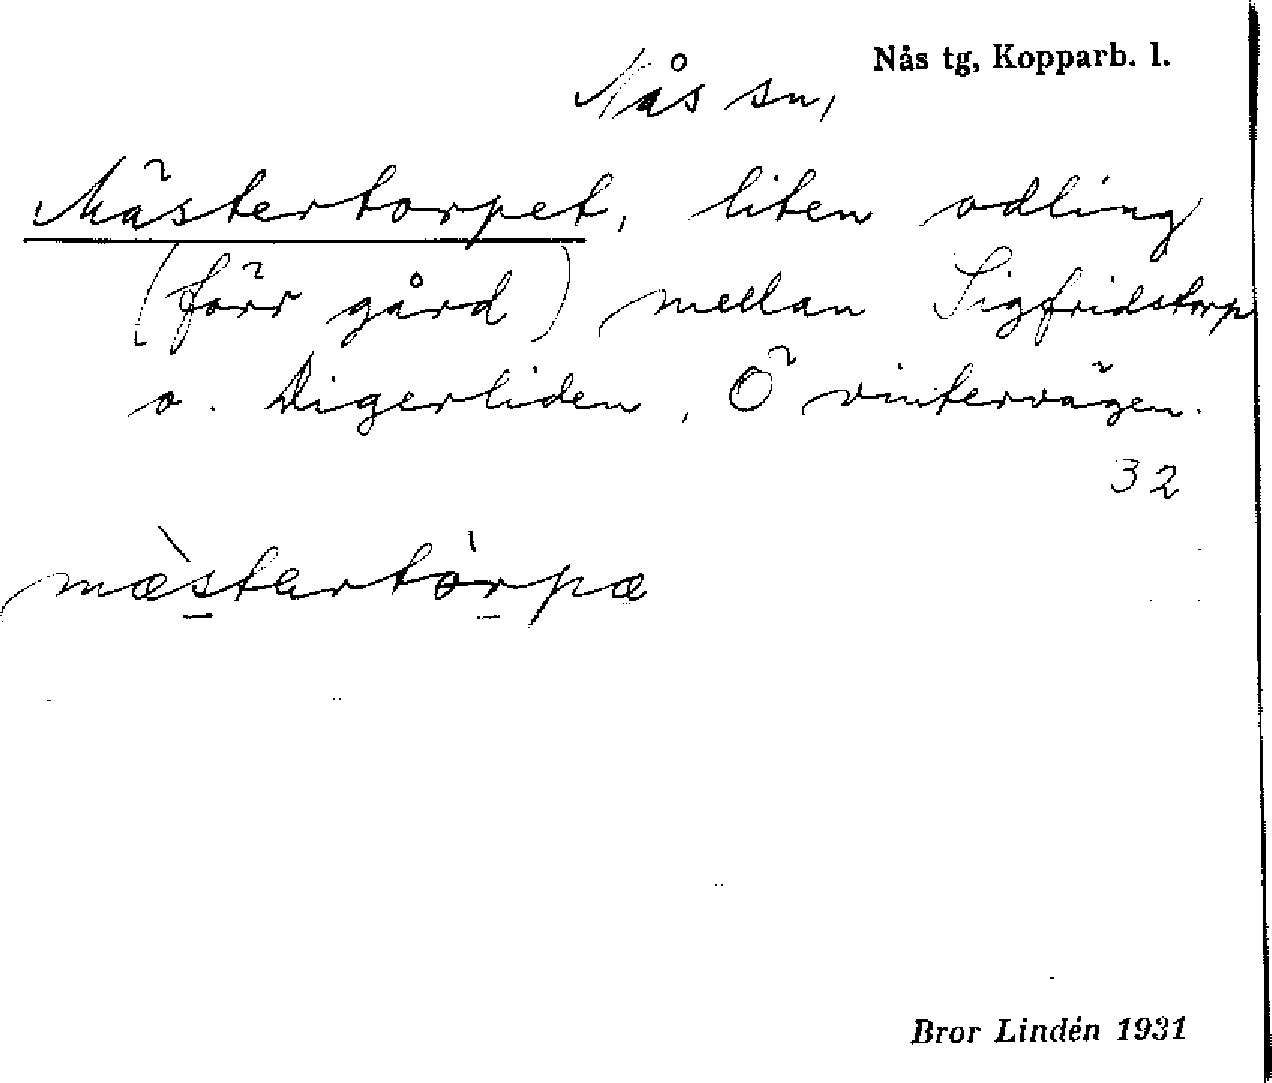 Nås tg, Kopparb. l.
Nås sn,
Mästertorpet, liten odling
(förr gård) mellan Sigfridstorp
o. Digerliden, Ö vintervägen.
32
mæ̀stertòrpæ
Bror Lindén 1931